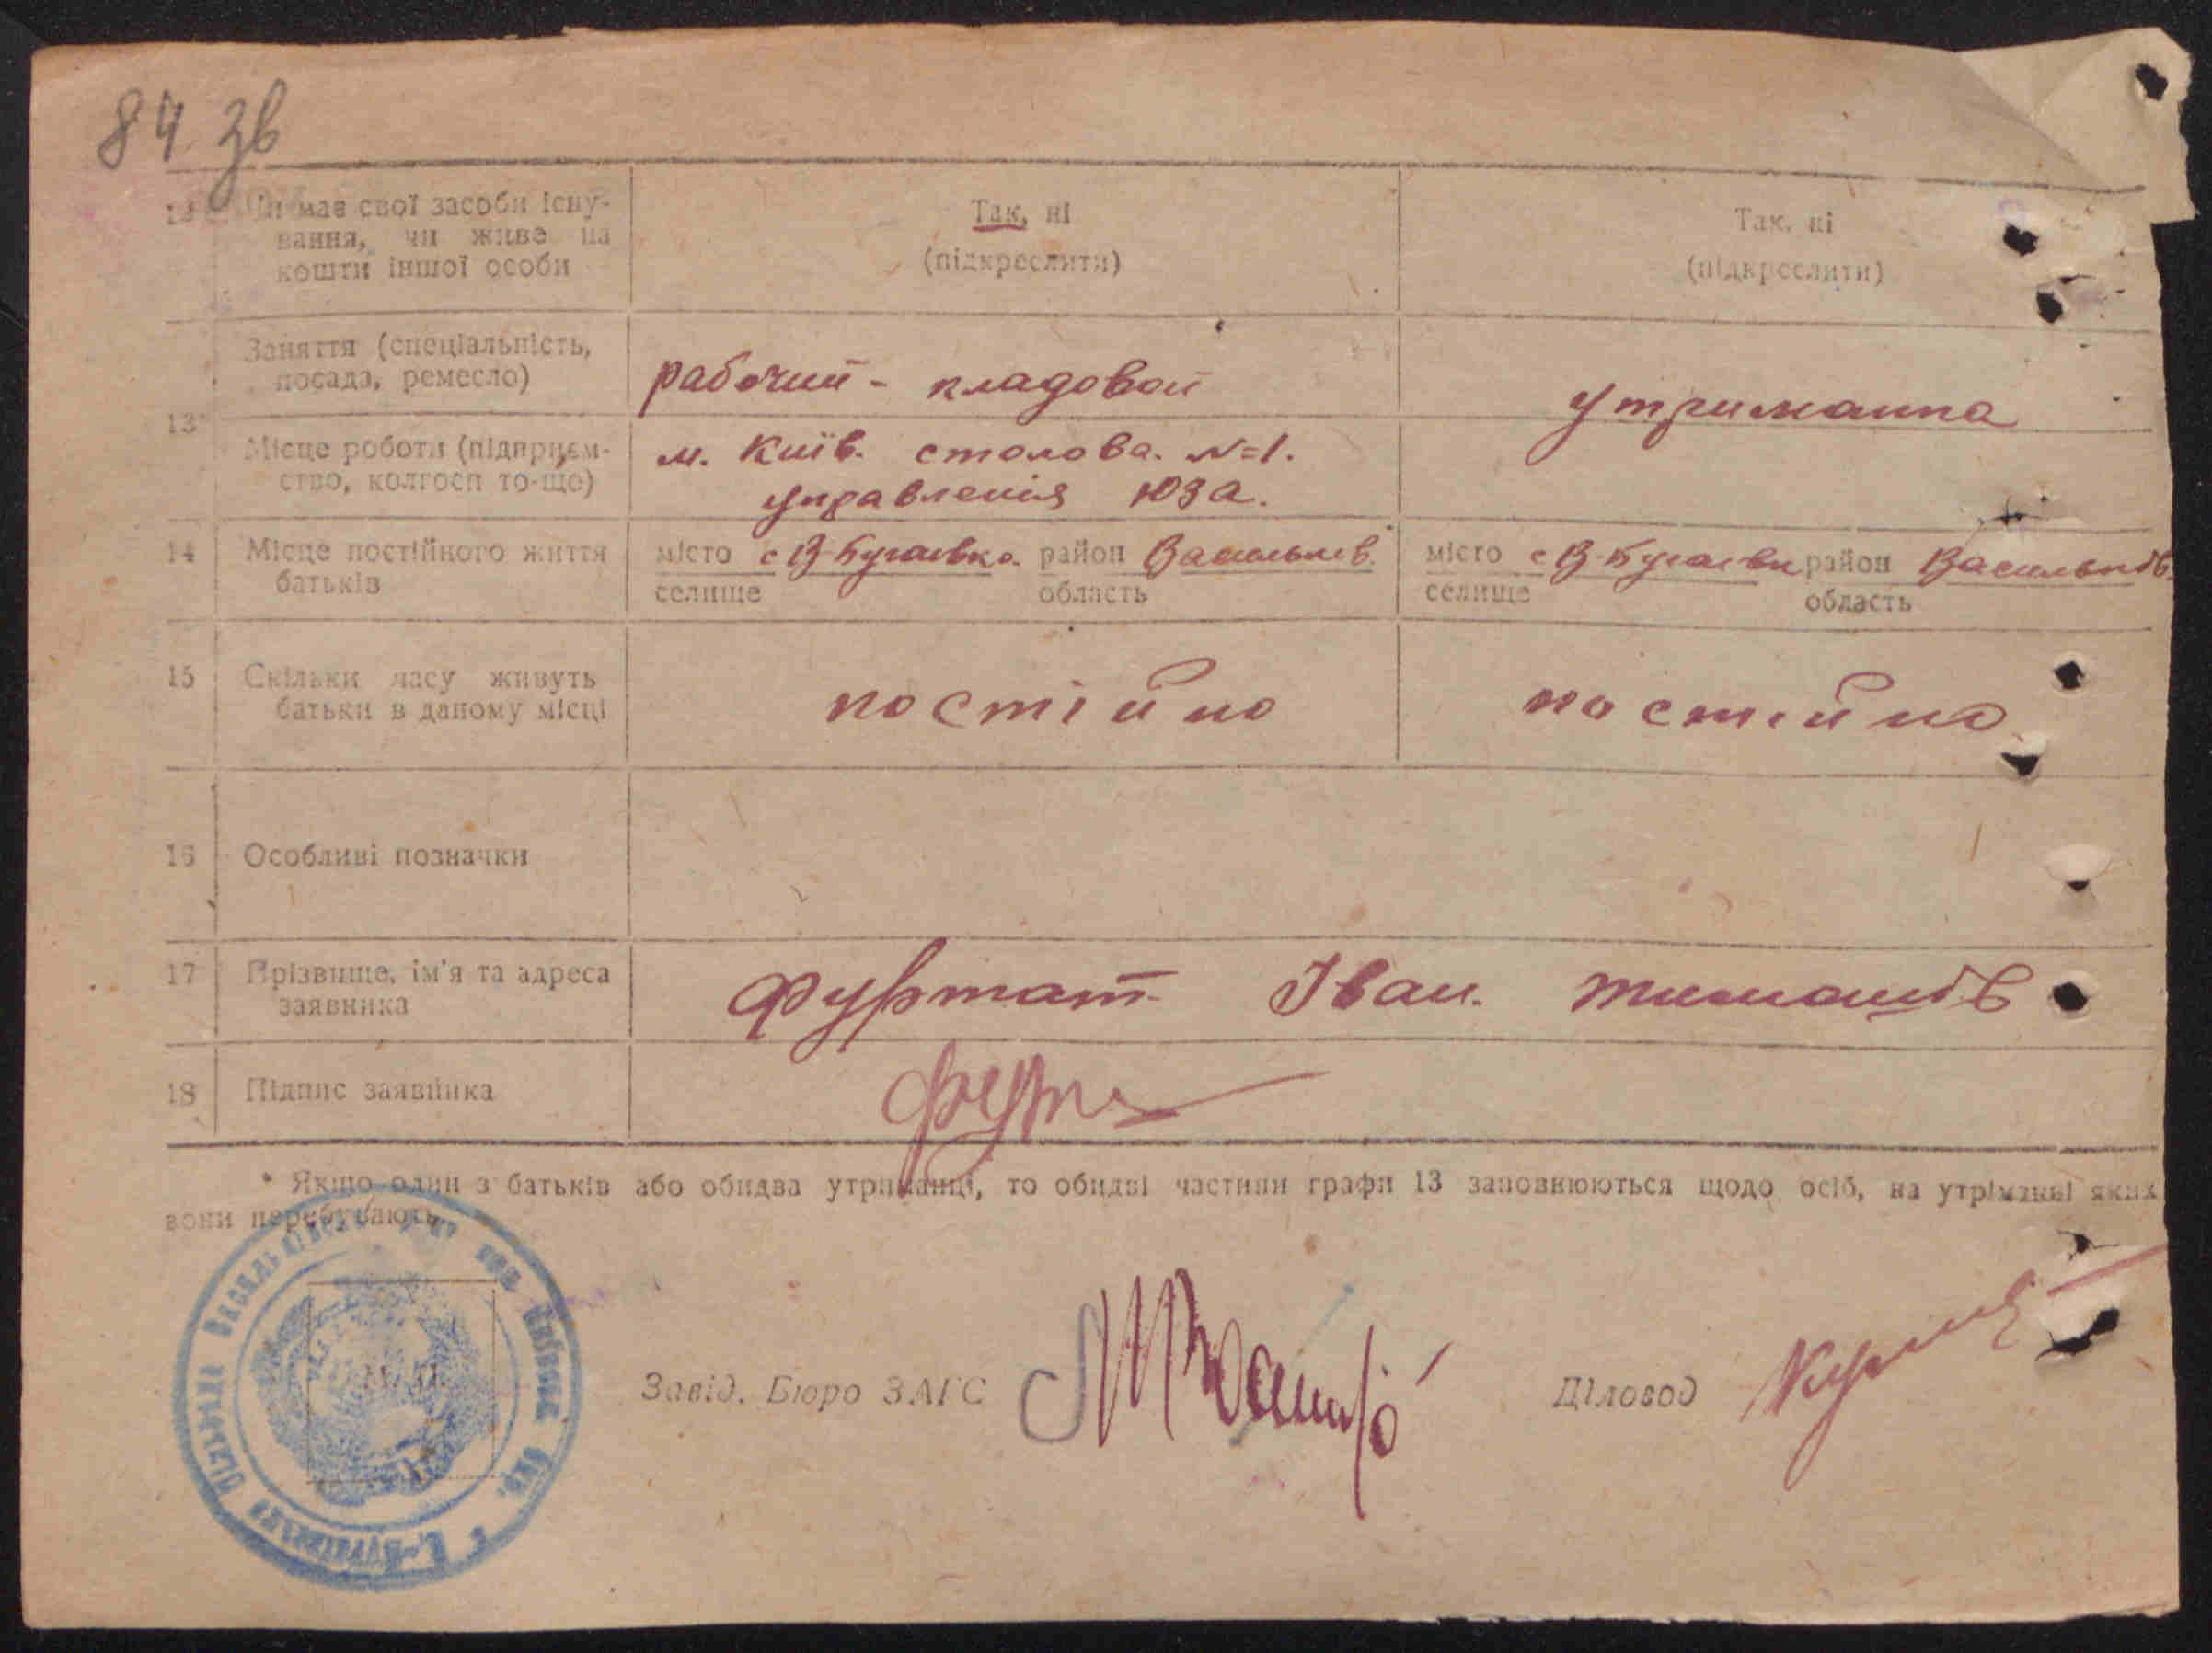 84 зв
12 Чи має свої засоби існу-
вання, чи живе на
кошти іншої особи
Так, ні
(підкреслити)
Так, ні
(підкреслити)
13*
Заняття (спеціальність,
посада, ремесло)
рабочий - кладовой
утриманка
Місце роботи (підприєм-
ство, колгосп то-що)
м. Київ. столова. №1.
управления ЮЗА.
14 Місце постійного життя
батьків
місто с В-Бугаевка. район Васильков.
селище область
місто с В-Бугаевки район Васильків.
селище область
15 Скільки часу живуть
батьки в даному місці
постійно
постійно
16 Особливі позначки
17 Прізвище, ім'я та адреса
заявника
Фуртат Іван.
18 Підпис заявника
* Якщо один з батьків або обидва утриманці, то обидві частини графи 13 заповнюються щодо осіб, на утріманні яких
вони перебувають.
М. П.
Завід. Бюро ЗАГС
Діловод